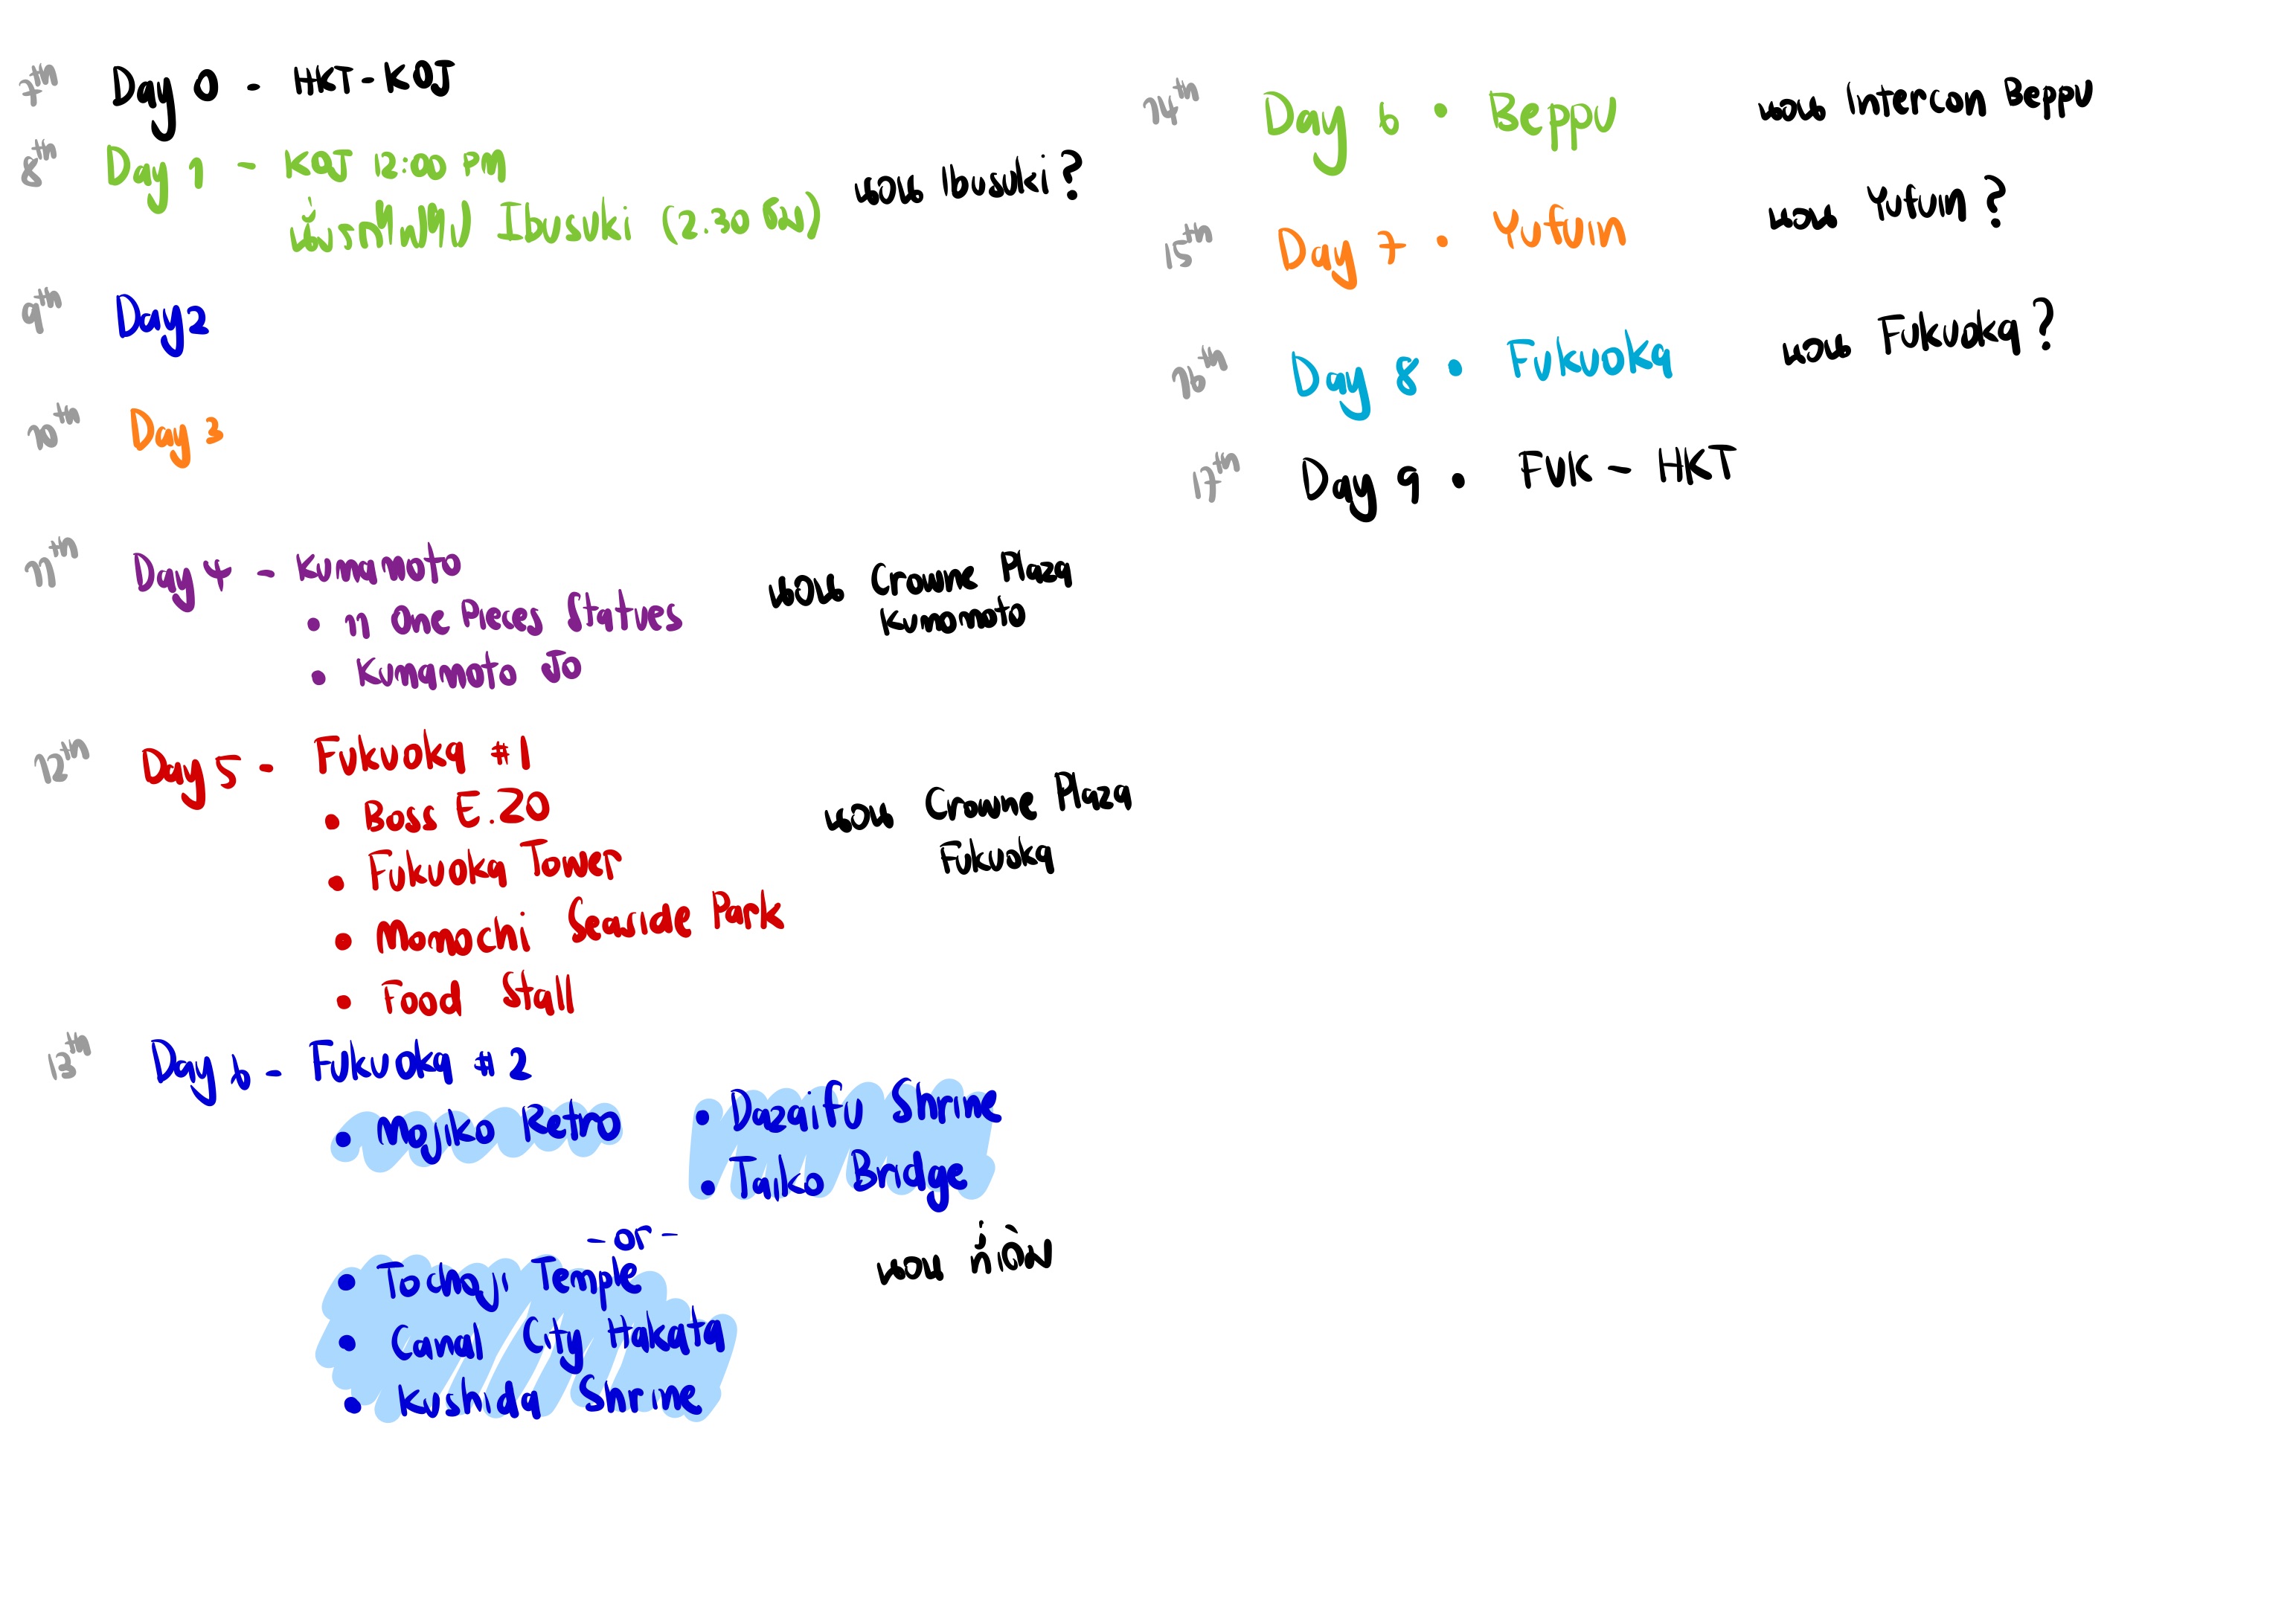 7th Day 0 - HKT-KOJ
8th Day 1 - KOJ 12:00 PM
นั่งรถไฟไป Ibusuki (2.30 ชม) นอน Ibusuki?
9th Day2
10th Day 3
11th Day 4 - Kumamoto นอน Crowne Plaza
Kumomoto
• 11 One Pieces Statues
• Kumamoto Jo
12th Day 5 - Fukuoka #1
• Boss E.ZO นอน Crowne Plaza
Fukuoka
• Fukuoka Tower
• Momochi Seaside Park
• Food Stall
13th Day 6 - Fukuoka #2
• Mojiko Retro
• Dazaifu Shrine
• Taiko Bridge
-or-
• Tochoji Temple
• Canal City Hakata
• Kushida Shrine
นอน ที่เดิม
14th Day 6 • Beppu นอน Intercon Beppu
15th Day 7 • Yufuin นอน Yufuin ?
16th Day 8 • Fukuoka นอน Fukuoka ?
17th Day 9 • FUK - HKT